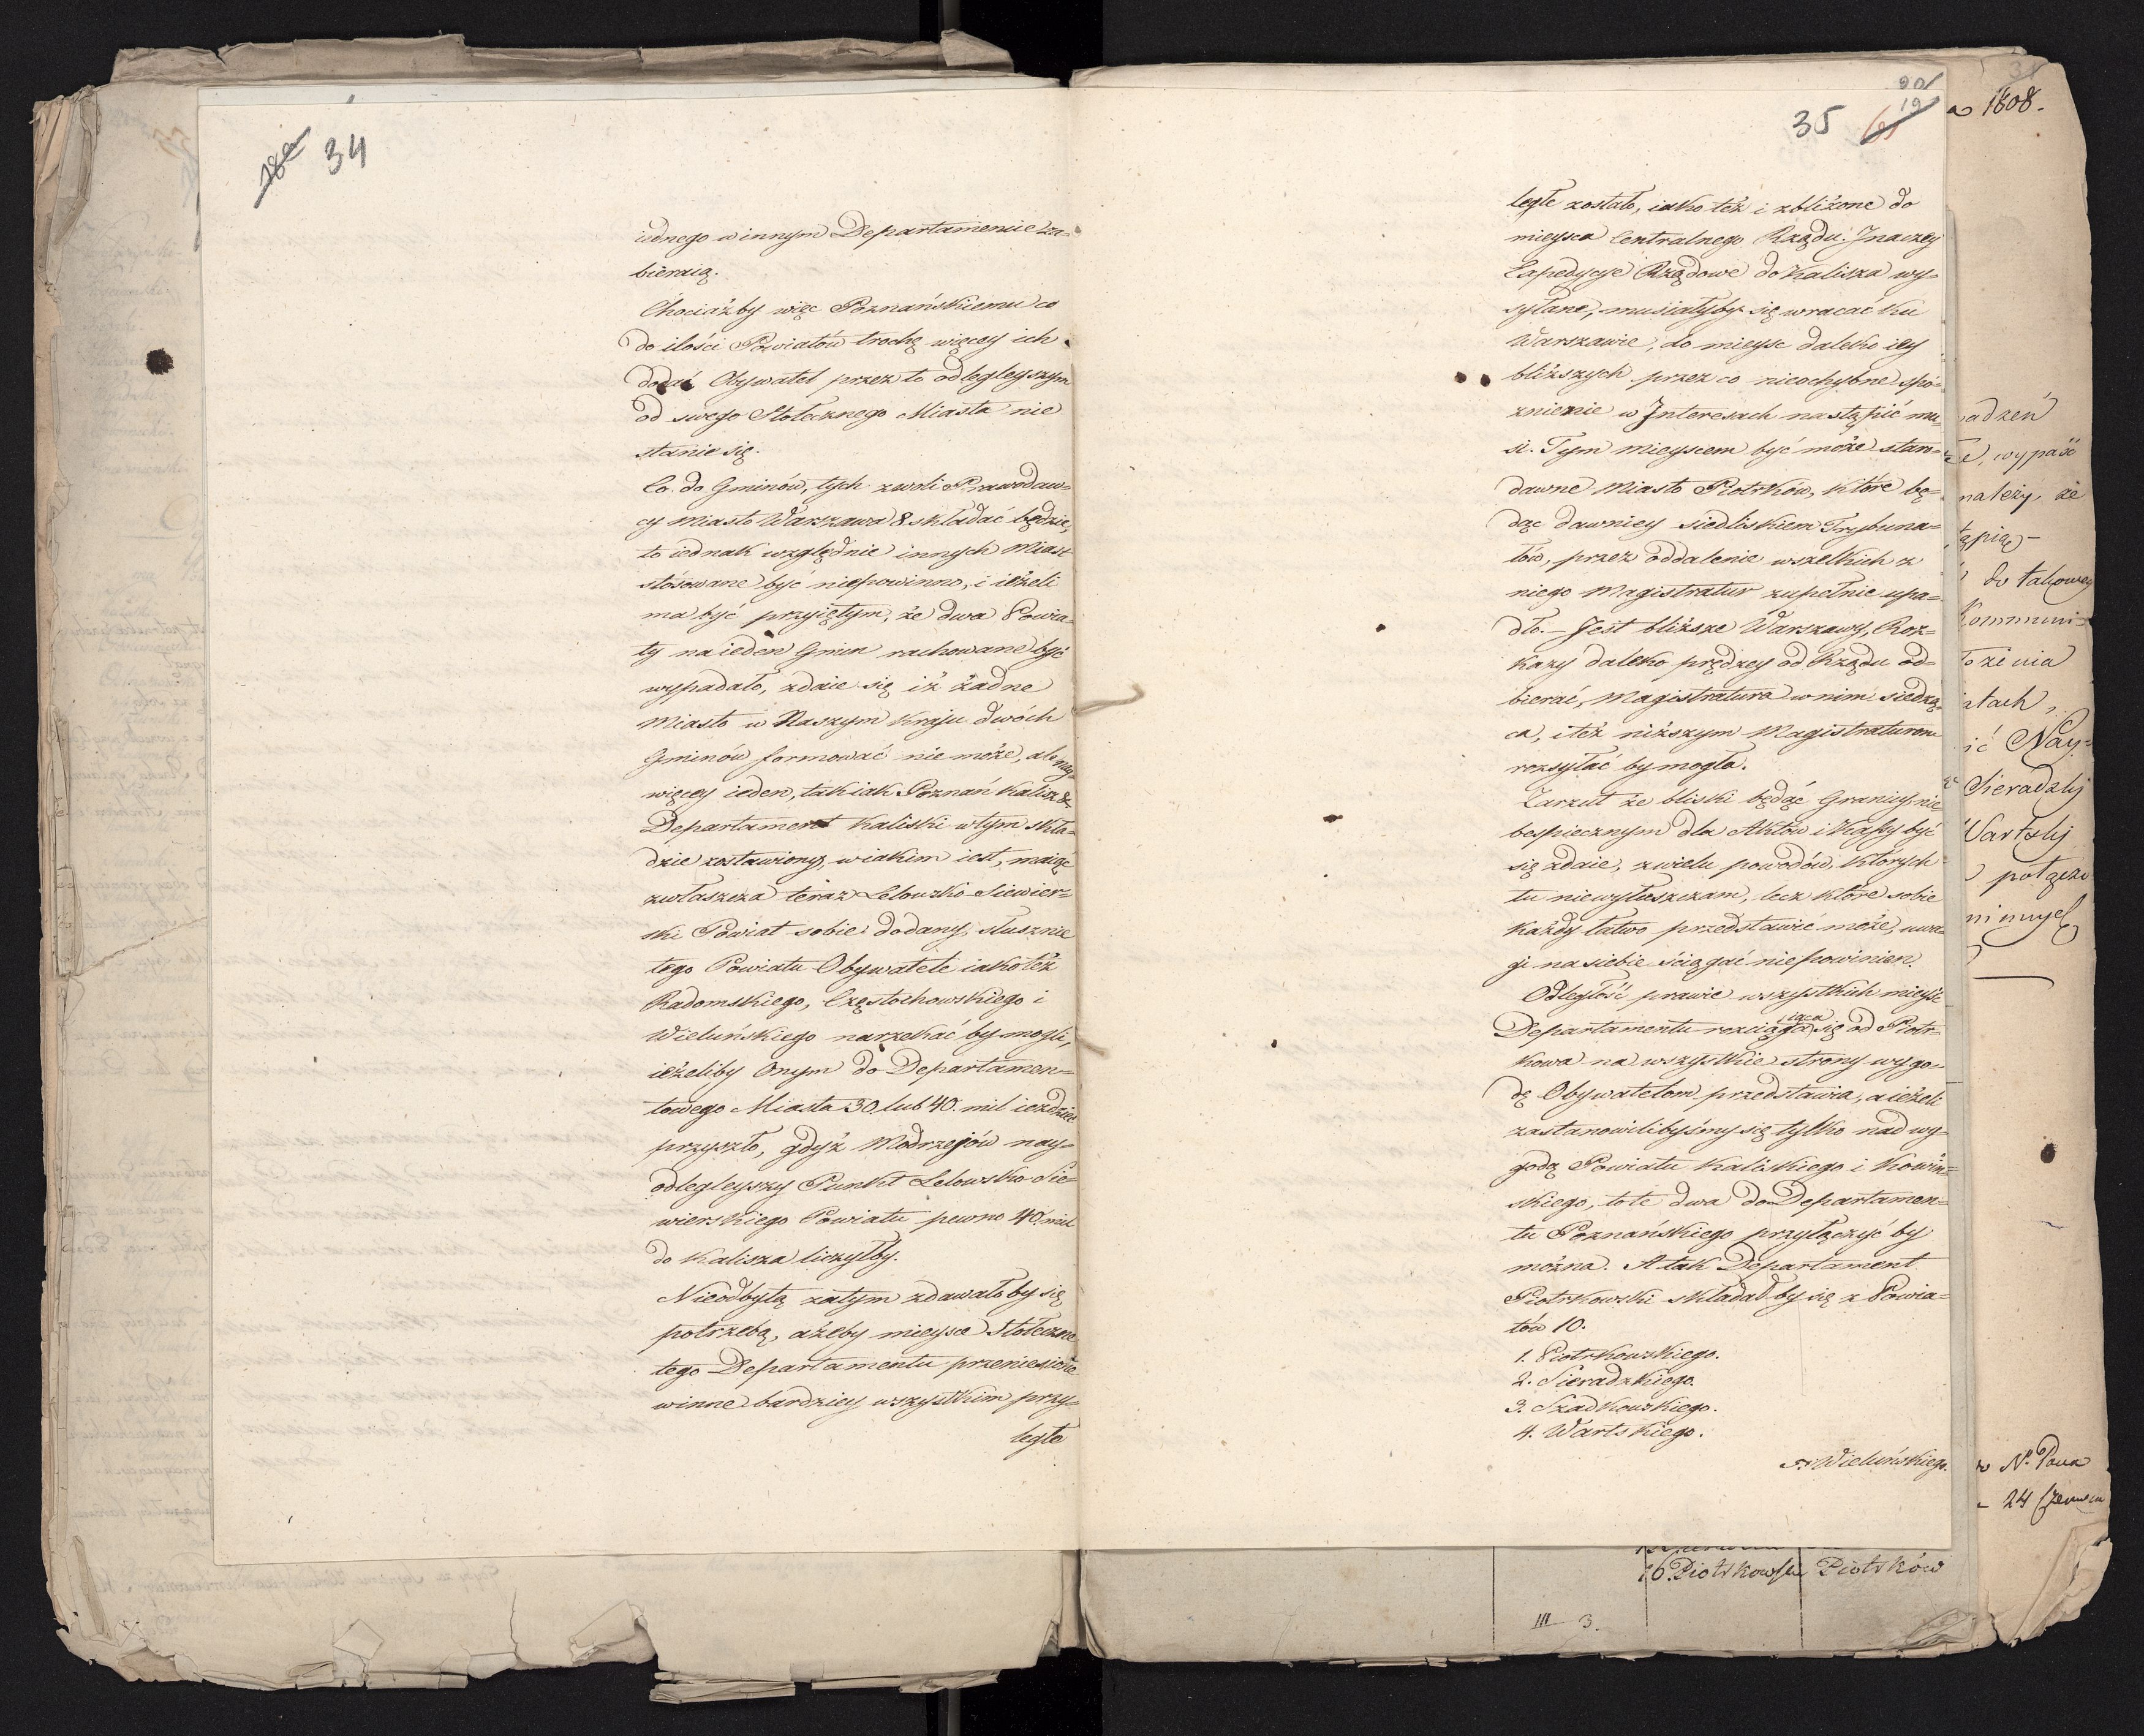 34
iednego w innym Departamenie za-
bieraią.
Chociażby więc Poznańskiemu co
do ilości Powiatów trochę więcey ich
dodać Obywatel przez to odlegleyszym
od swego Stołecznego Miasta nie
stanie się.
Co do Gminów, tych z woli Prawodaw=
cy miasto Warszawa 8 składać będzie,
to iednak względnie innych Miast
stósowane być niepowinno, i ieżeli
ma być przyiętym, że dwa Powia-
ty na ieden Gmin rachowane być
wypadało, zdaie się iż żadne
Miasto w Naszym Kraju dwóch
Gminów formować nie może, ale nay-
więcey ieden, tak iak Poznań Kalisz &.
Departament Kaliski w tym skła-
dzie zostawiony, w iakim iest, maiąc
zwłaszcza teraz Lelowsko-Siewier=
ski Powiat sobie dodany, słusznie
tego Powiatu Obywatele iako też
Radomskiego, Częstochowskiego i
Wieluńskiego narzekać by mogli,
ieżeliby Onym do Departamen=
towego Miasta 30 lub 40. mil ieździć
przyszło, gdyż Modrzejów nay-
odlegleyszy Punkt Lelowsko-Sie=
wierskiego Powiatu pewno 40. mil
do Kalisza liczyłby.
Nieodbytą zatym zdawałoby się
potrzebą, ażeby mieysce Stołeczne
tego Departamentu przeniesione
w inne bardziey wszystkim przy=
ległe
35
19
ległe zostało, iako też i zbliżone do
mieysca Centralnego Rządu. Inaczey
Expedycye Rządowe do Kalisza wy-
syłane, musiałyby się wracać ku
Warszawie, do mieysc daleko iey
bliższych przez co nieochybne spó-
znienie w Interesach nastąpić mu-
si. Tym mieyscem być może staro-
dawne Miasto Piotrków, które bę=
dąc dawniey siedliskiem Trybuna=
łów, przez oddalenie wszelkich z
niego Magistratur zupełnie upa=
dło. – Jest bliższe Warszawy, Roz=
kazy daleko prędzey od Rządu od=
bierać, Magistratura w nim siedzą-
ca, i też niższym Magistraturom
rozsyłać by mogła.
Zarzut że bliski będąc Granicy nie
bespiecznym dla Aktów i Kassy być
się zdaie, z wielu powodów, których
tu niewytłuszczam, lecz które sobie
każdy łatwo przedstawić może, uwa-
gi na siebie ściągać niepowinien.
Odległość prawie wszystkich mieysc
Departamentu rozciągaiąca się od Piotr-
kowa na wszystkie strony wygo-
dę Obywatelom przedstawia, a ieżeli
zastanowilibyśmy się tylko nad wy-
godą Powiatu Kaliskiego i Koniń=
skiego, to te dwa do Departamen=
tu Poznańskiego przyłączyć by
można. A tak Departament
Piotrkowski składał by się z Powia=
tów 10.
1. Piotrkowskiego.
2. Sieradzkiego.
3. Szadkowskiego.
4. Wartskiego.
5. Wieluńskiego.
1808.
adzeń
wypaść
należy, że
tąpią –
do takowey
Kommuni=
łożenia
atach,
ić Nay=
Sieradzky
Wartsky
połącze
N. Pana
24 Czerwca
16. Piotrkowski Piotrków
III 3.